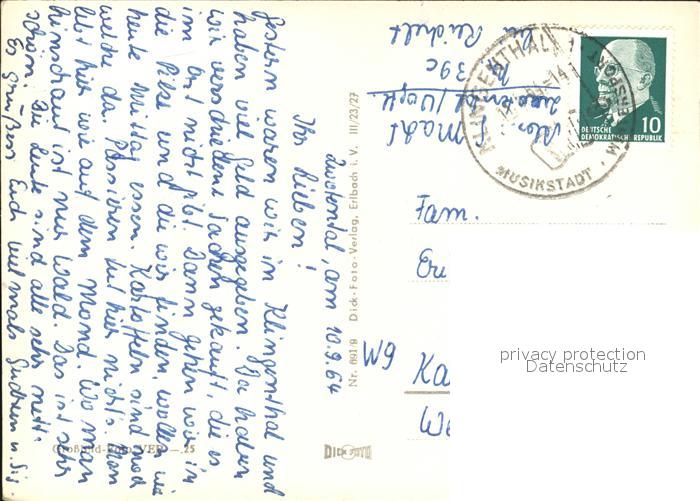 Zwotental, am 10.9.64
Ihr Lieben!
Gestern waren wir in Klingenthal und
haben viel Geld ausgegeben. Da haben
wir verschiedene Sachen gekauft, die es
im Ort nicht gibt. Dann gehen wir in
die Pilze und die wir finden, wollen wir
heute Mittag essen. Kartoffeln sind noch
welche da. Passieren tut hier nichts. Man
lebt hier wie auf dem Mond. Wo man
hinschaut ist nur Wald. Das ist sehr
schön. Die Leute sind alle sehr nett.
Es grüßen Euch vielmals
Nr. 691/9 Dick-Foto-Verlag, Erlbach i. V. III/23/27
DICK FOTO
Großbild-Foto VEB —.25
Reichelt
39c
KLINGENTHAL
MUSIKSTADT
DEUTSCHE
DEMOKRATISCHE REPUBLIK
10
privacy protection
Datenschutz